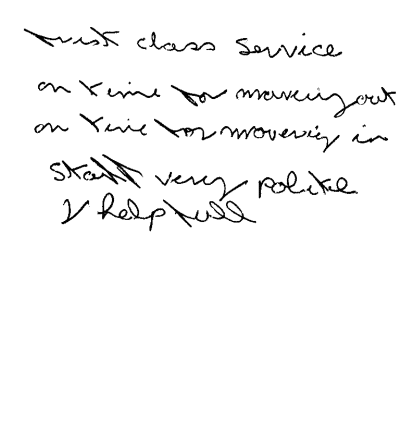 first class service
on time for moveing out
on time for moveing in
staff very polite
& helpfull